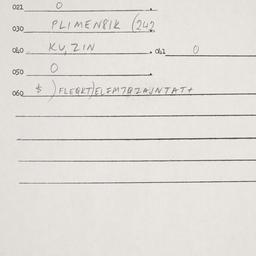 021 0
030 PLIMENRIK (242
040 KU, ZIN 041 0
050 0
060 $ ) FLEGKT)ELFM7QZAJNTAT+